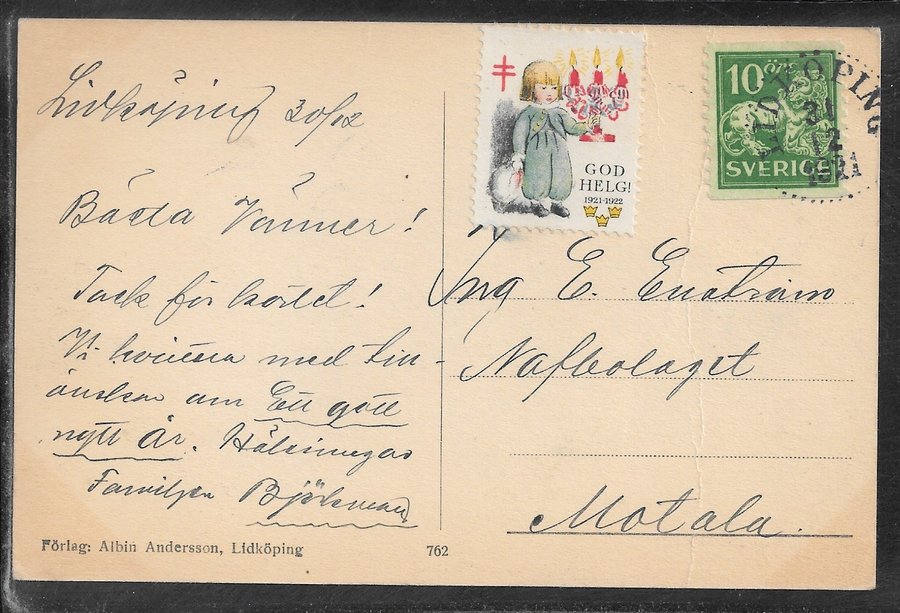 Lidköping 30/12
Bästa Vänner!
Tack för kortet!
Vi kvittera med till-
önskan om Ett gott
nytt år. Hälsningar
Familjen Björkman
Förlag: Albin Andersson, Lidköping
762
GOD
HELG!
1921-1922
10 ÖRE
SVERIGE
LIDKÖPING
31
12
1921
Ing E. Enström
Nafbolaget
Motala.